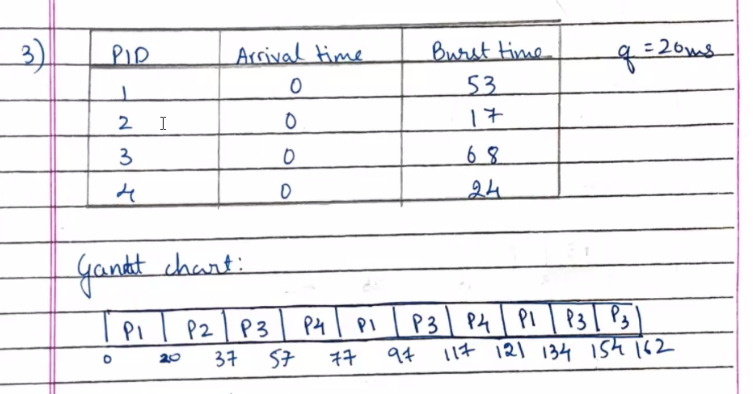 3) PID Arrival time Burst time q = 20ms
1 0 53
2 0 17
3 0 68
4 0 24
Gantt chart:
P1 P2 P3 P4 P1 P3 P4 P1 P3 P3
0 20 37 57 77 97 117 121 134 154 162